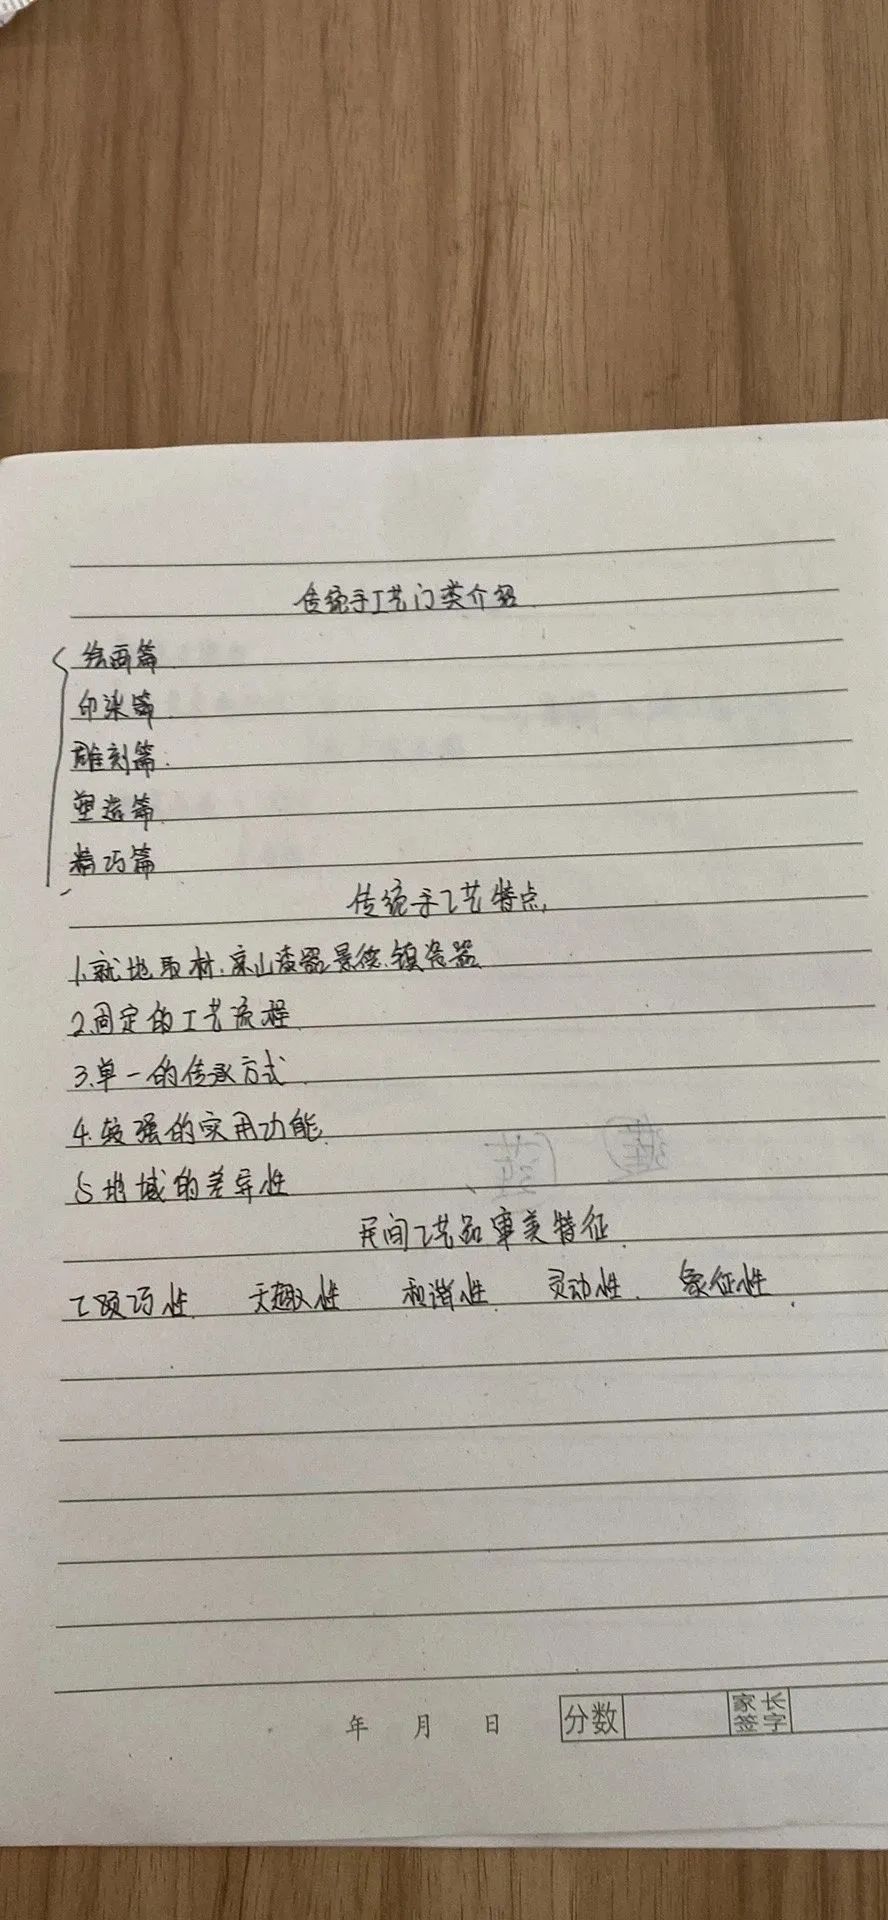 传统手工艺门类介绍
绘画篇
印染篇
雕刻篇.
塑造篇
精巧篇
传统手工艺特点,
1.就地取材.凉山漆器 景德镇瓷器
2.固定的工艺流程
3.单一的传承方式
4.较强的实用功能
5.地域的差异性
民间工艺品审美特征
工巧性 天趣性 和谐性 灵动性. 象征性.
年 月 日 分数 家长签字